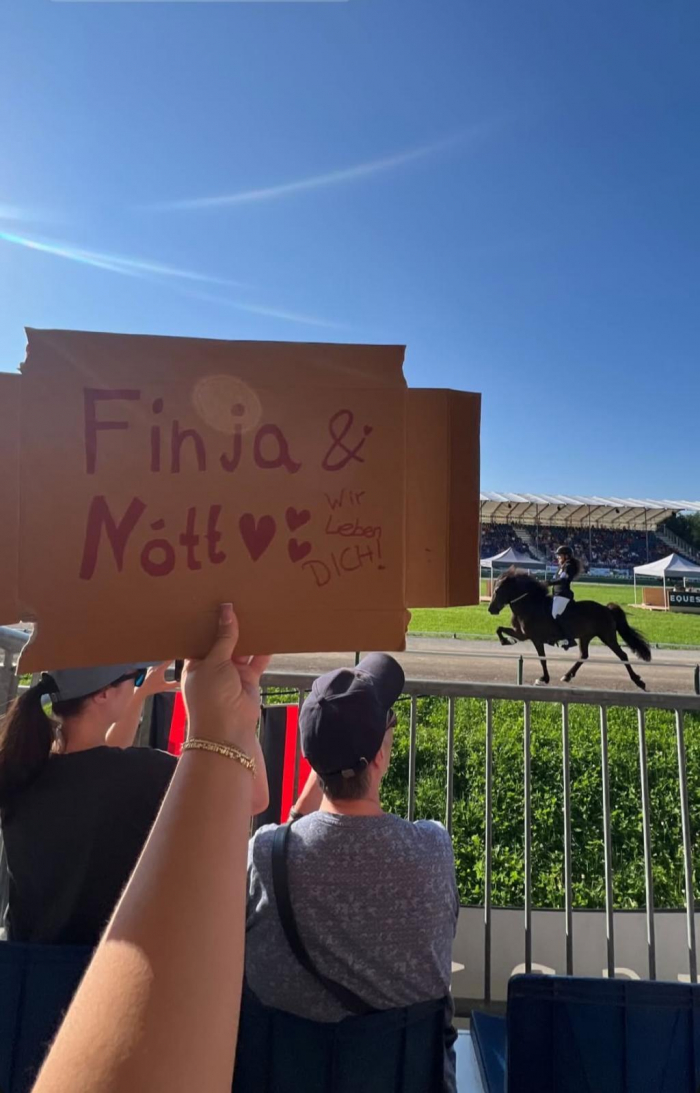 Finja &
Nótt
Wir
Leben
DICH!
EQUES